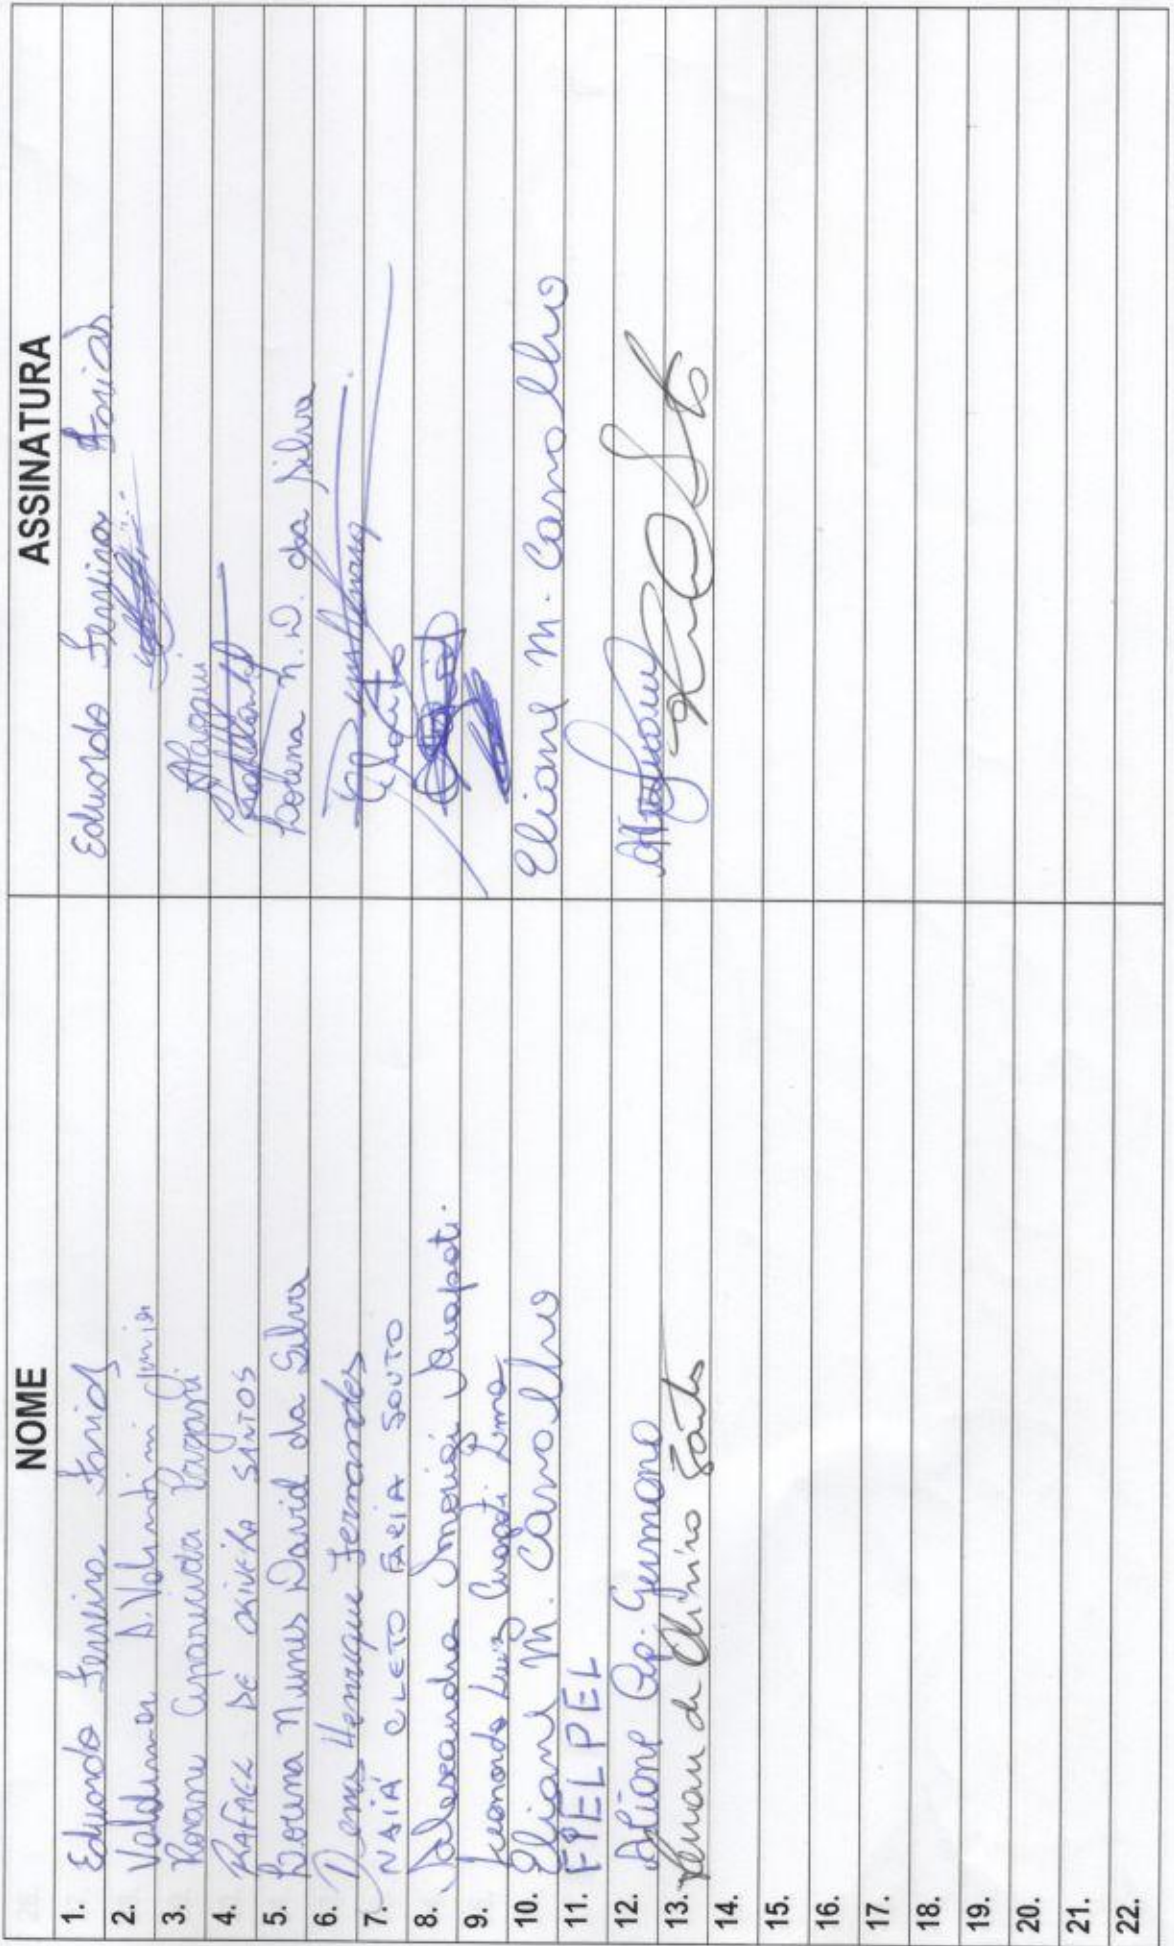 NOME ASSINATURA
1. Eduardo Ferreira Farias Eduardo Ferreira Farias
2. Valdemar A. Valentim Junior
3. Rosane Aparecida Pagani
4. RAFAEL DE OLIVEIRA SANTOS
5. Lorena Nunes David da Silva Lorena N. D. da Silva
6. Denis Henrique Fernandes
7. NAIÁ CLETO FARIA SOUTO
8.
9. Leonardo Luis Lima
10. Eliane M. Carvalho Eliane M. Carvalho
11. FIELPEL
12. Ap. Germano
13. Renan de Santos
14.
15.
16.
17.
18.
19.
20.
21.
22.